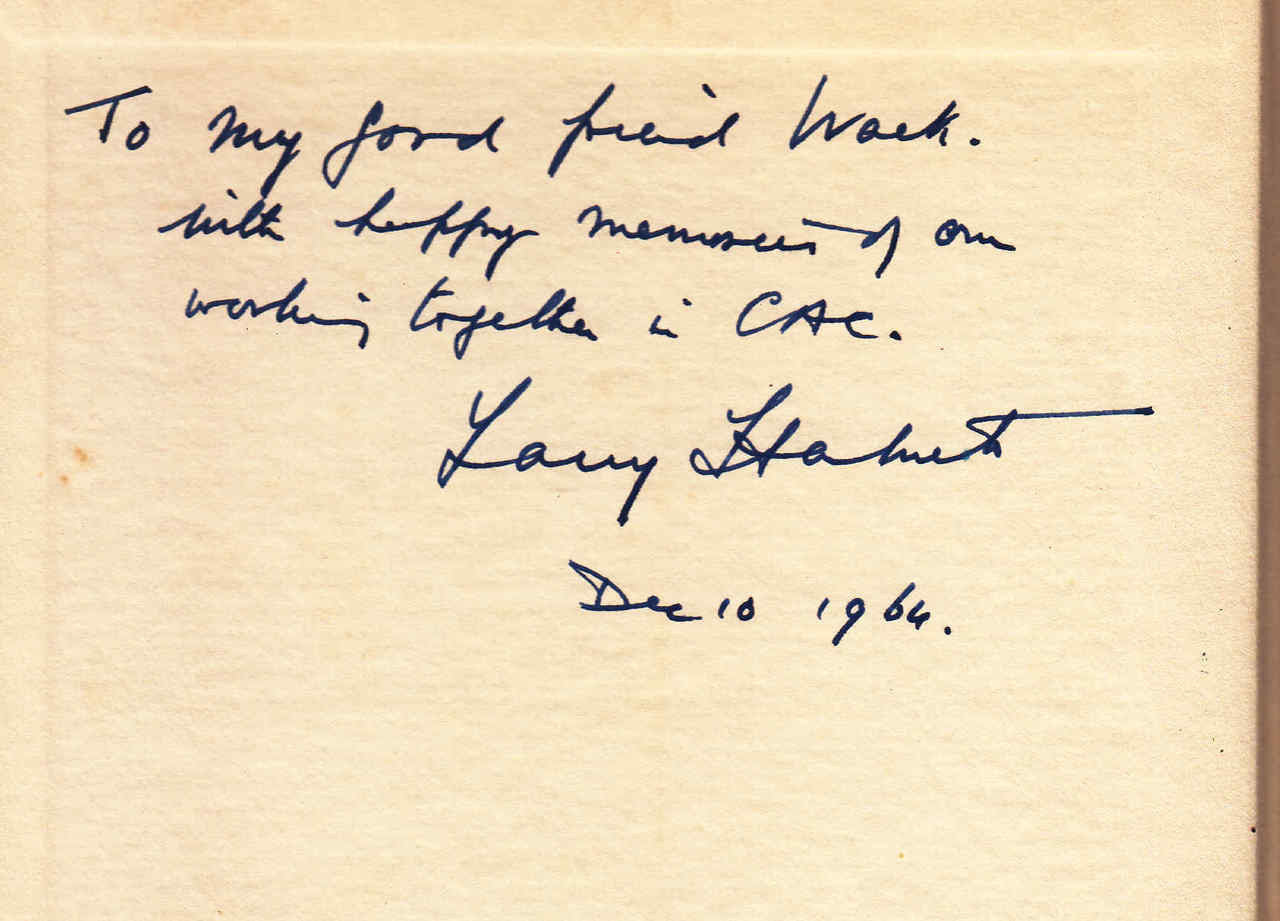 To my good friend Wack.
with happy memories of our
working together in CAC.
Larry
Dec 10 1964.